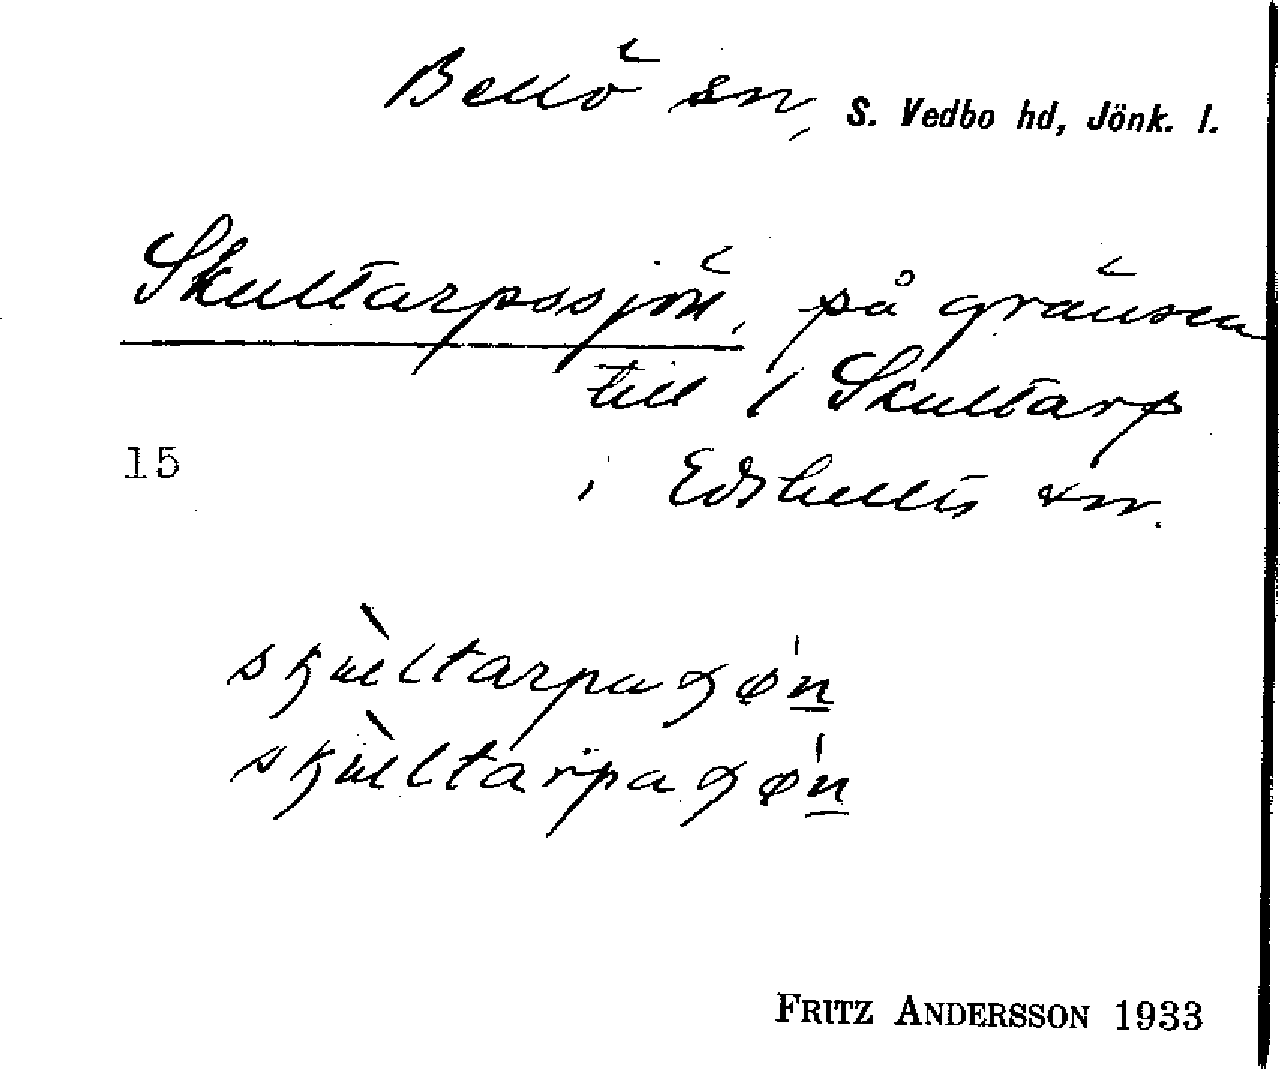 Bellö sn, S. Vedbo hd, Jönk. l.
Skultarpssjön, på gränsen
till Skultarp
15
i Edshults sn.
FRITZ ANDERSSON 1933